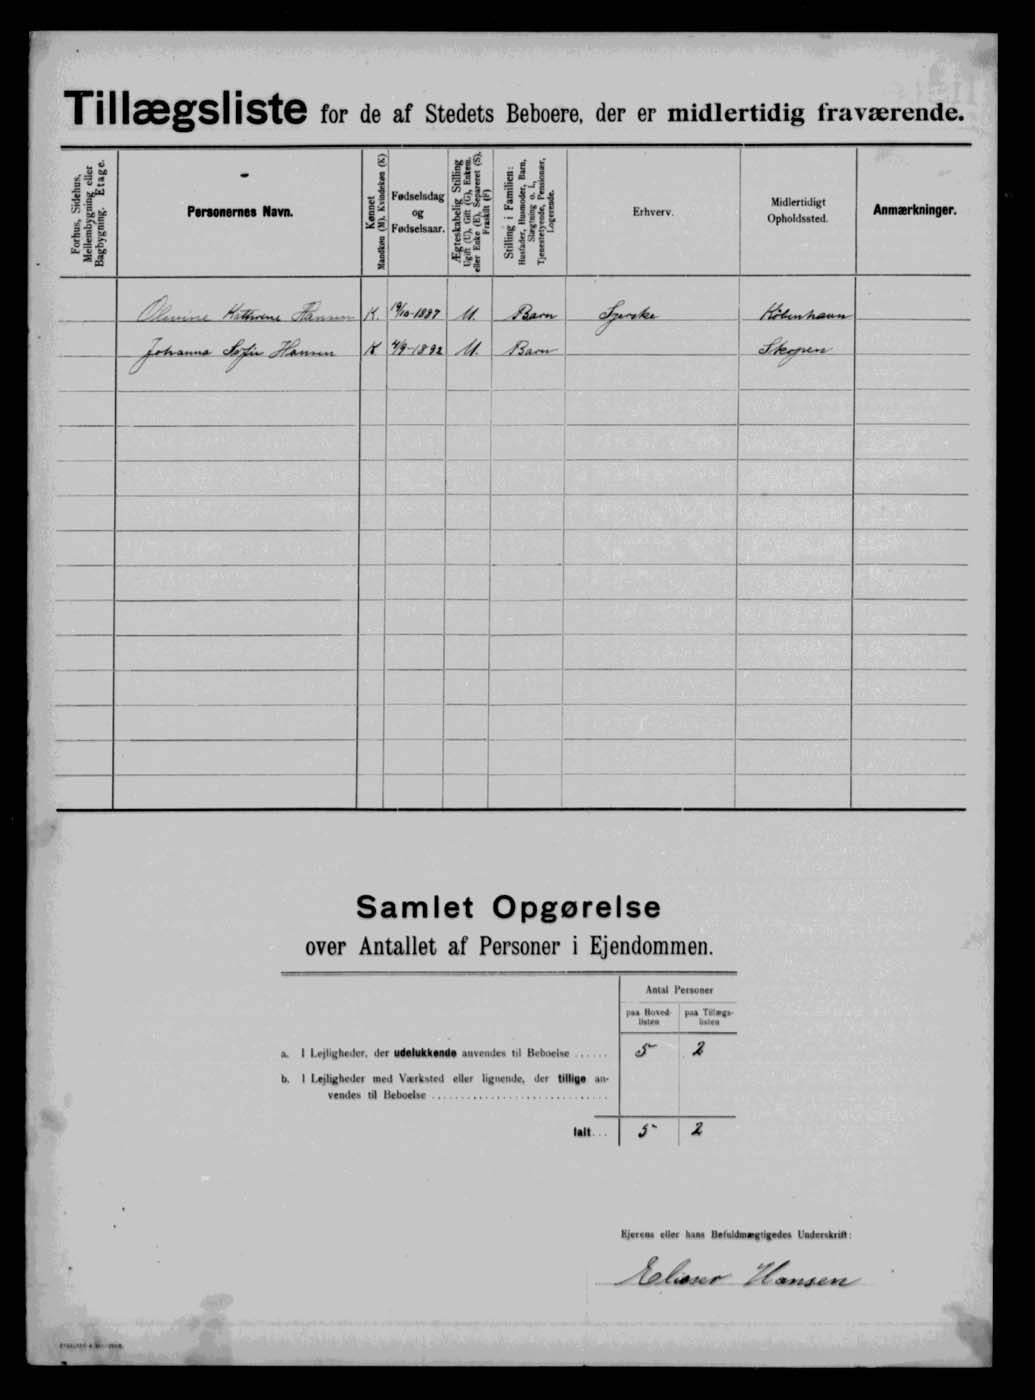 Tillægsliste for de af Stedets Beboere, der er midlertidig fraværende.
Forhus, Sidehus, Mellembygning eller Bagbygning. Etage.
Personernes Navn.
Kønnet Mandkøn (M), Kvindekøn (K)
Fødselsdag og Fødselsaar.
Ægteskabelig Stilling Ugift (U), Gift (G), Enkem. eller Enke (E), Separeret (S), Fraskilt (F)
Stilling i Familien: Husfader, Husmoder, Barn, Slægtning o. l., Tjenestetyende, Pensionær, Logerende.
Erhverv.
Midlertidigt Opholdssted.
Anmærkninger.
Olevine Kathrine Hansen K. 19/10-1887 U. Barn Syerske København
Johanna Sofie Hansen K 4/9-1892 U. Barn Skopen
Samlet Opgørelse
over Antallet af Personer i Ejendommen.
Antal Personer
paa Hoved-listen
paa Tillægs-listen
a. I Lejligheder, der udelukkende anvendes til Beboelse ...... 5 2
b. I Lejligheder med Værksted eller lignende, der tillige an-
vendes til Beboelse ..............................
Ialt... 5 2
Ejerens eller hans Befuldmægtigedes Underskrift:
Elieser Hansen